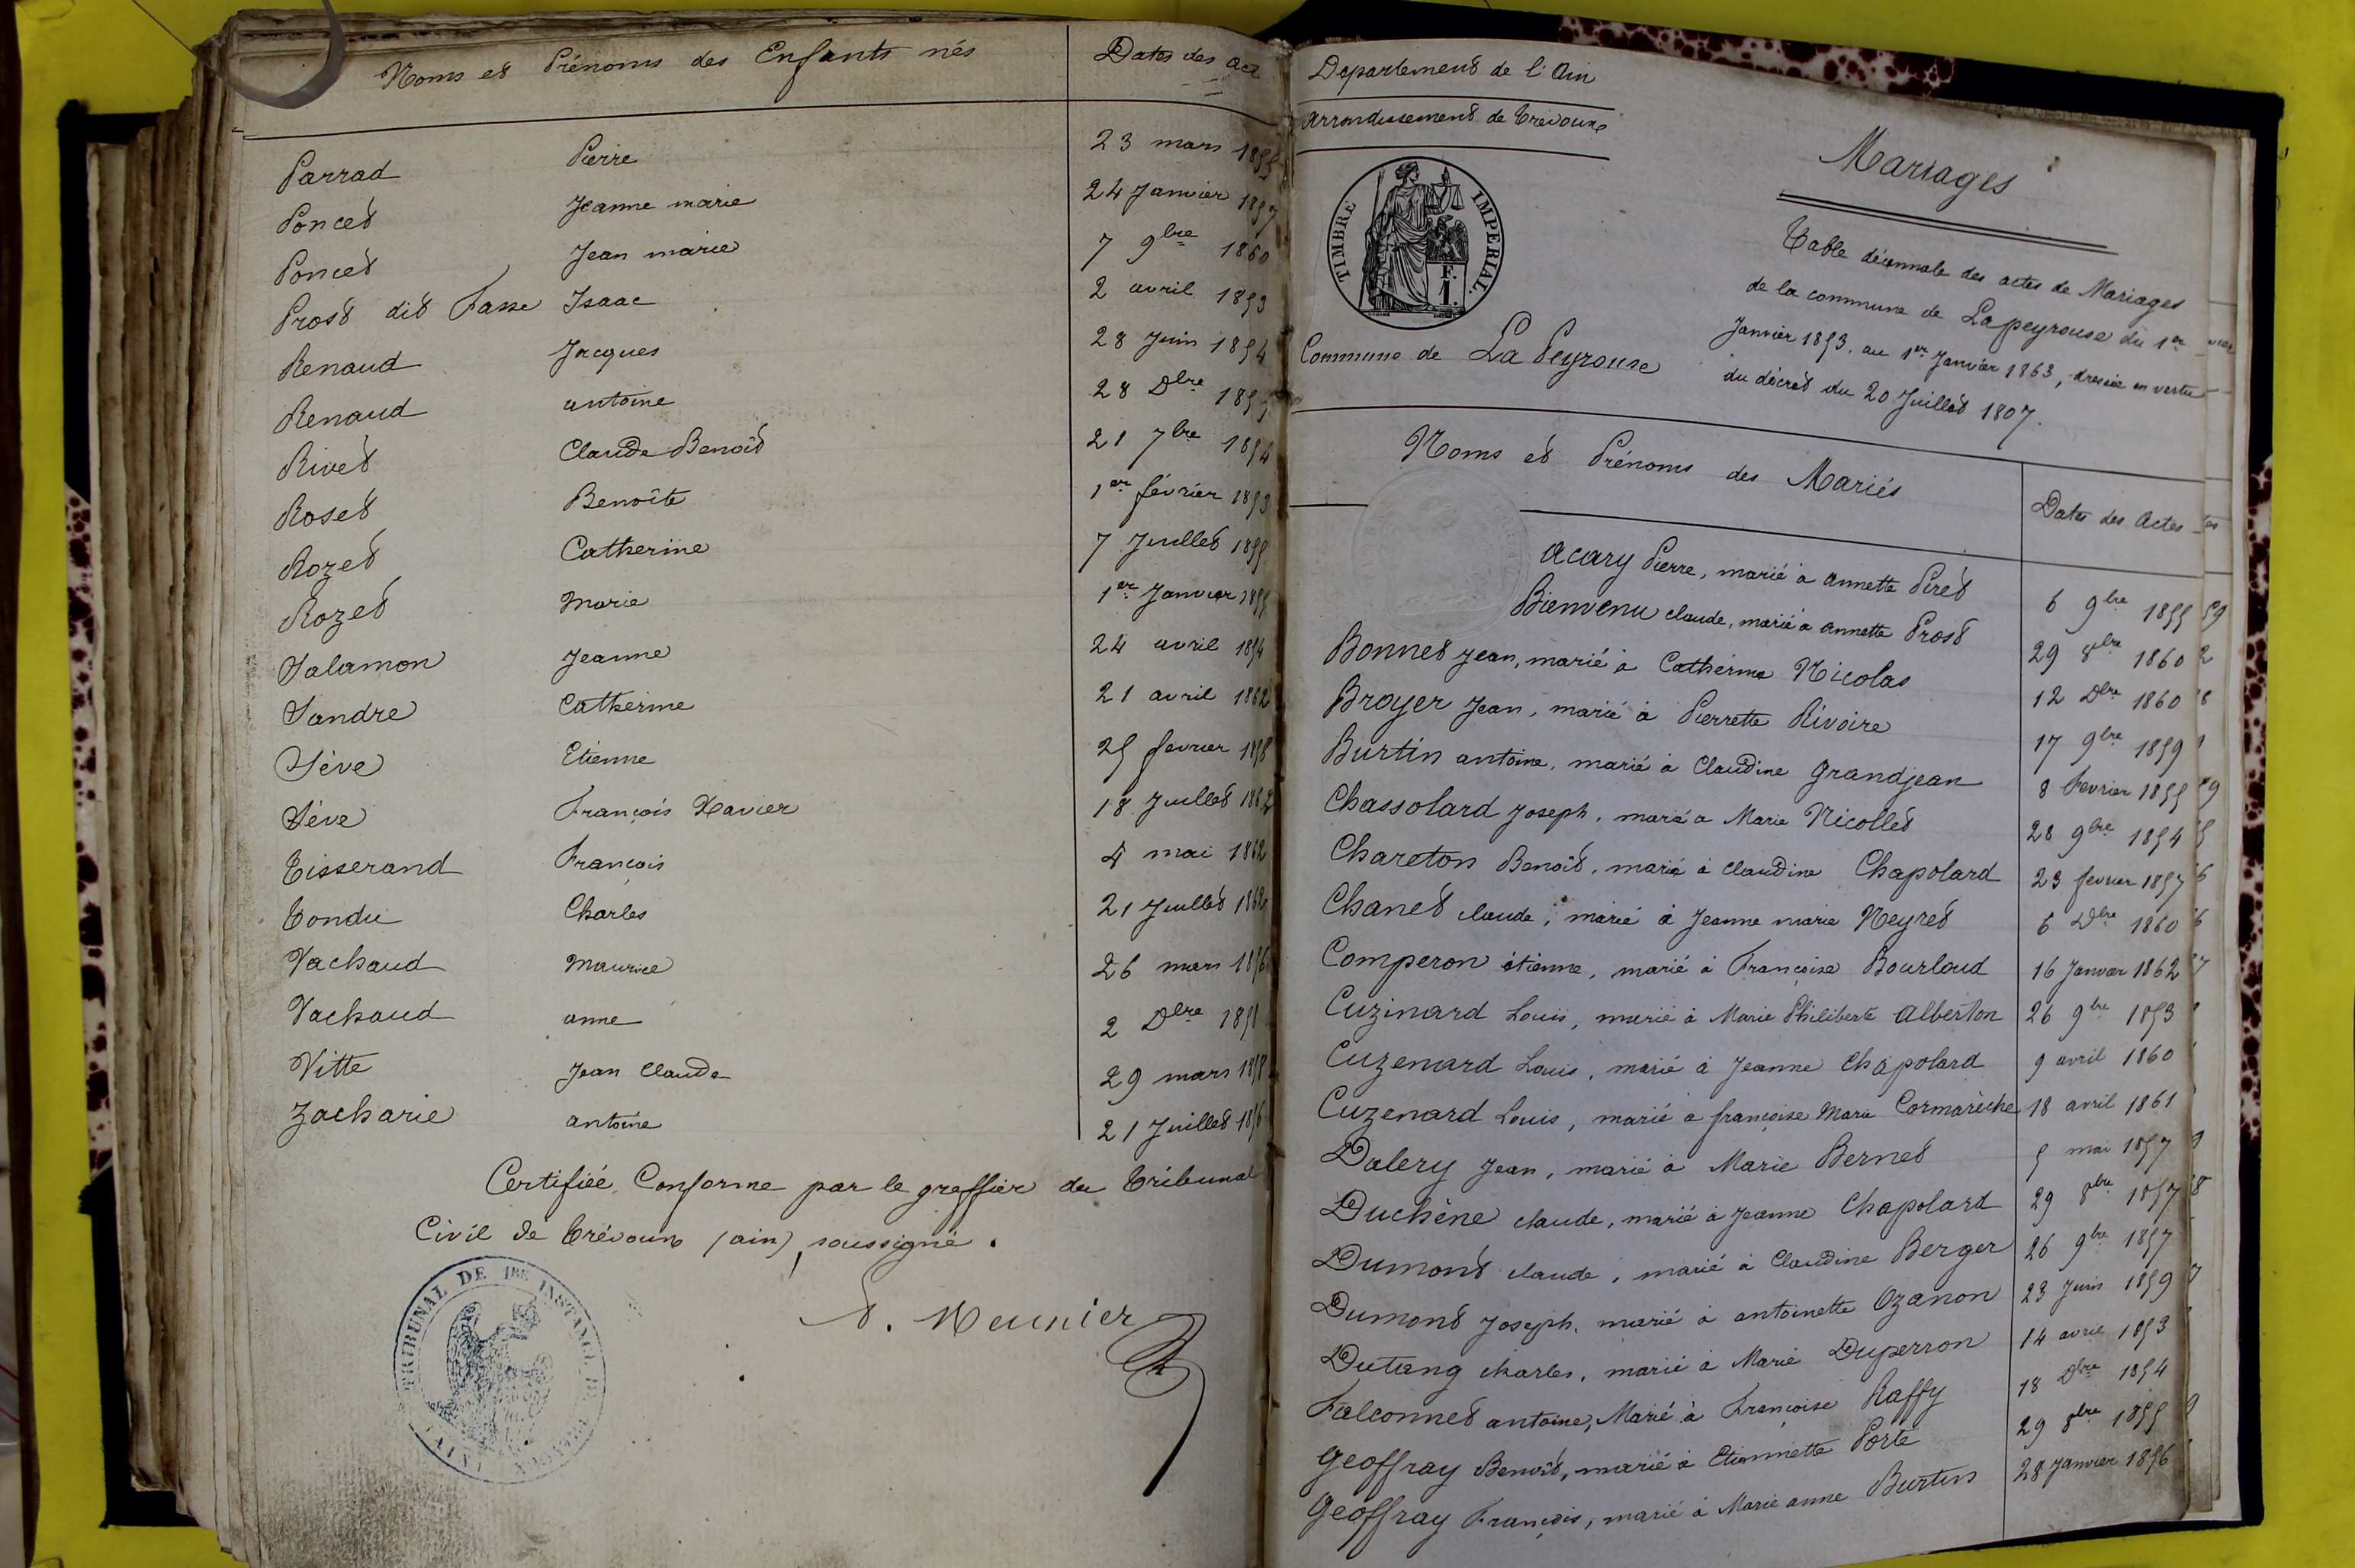 Noms et Prénoms des Enfants nés Dates des act
Parrad Pierre 23 mars 1855
Poncet Jeanne marie 24 Janvier 1857
Poncet Jean marie 7 9bre 1860
Prost dit Fasse Isaac 2 avril 1853
Renaud Jacques 28 Juin 1854
Renaud antoine 28 Dbre
Rivet Claude Benoît 21 7bre 1854
Roset Benoîte 1er février 1853
Rozet Catherine 7 Juillet 1855
Rozet Marie 1er Janvier 1855
Salamon Jeanne 24 avril 1854
Sandre Catherine 21 avril 1862
Sève Etienne 25 fevrier 1858
Sève François Xavier 18 Juillet 1862
Tisserand François 4 mai 1862
Tondu Charles 21 Juillet 1862
Vachaud Maurice 26 mars 1856
Vachaud anne 2 Dbre
Vitte Jean Claude 29 mars 1858
Zacharie antoine 21 Juillet 1856
Certifiée Conforme par le greffier du tribunal
Civil de trévoux (ain) soussigné.
Meunier
TRIBUNAL DE 1RE INSTANCE DE TREVOUX (AIN)
Departement de l'Ain
arrondissement de trevoux
TIMBRE IMPERIAL
F.
1.
Commune de La Peyrouse
Mariages
Table décennale des actes de Mariages
de la commune de Lapeyrouse du 1er
Janvier 1853, au 1er Janvier 1863, dressée en vertu
du décret du 20 Juillet 1807.
Noms et Prénoms des Mariés Dates des Actes
acary Pierre, marié à annette Piret 6 9bre 1855
Bienvenu claude, marié à annette Prost 29 8bre 1860
Bonnet Jean, marié à Catherine Nicolas 12 Dbre 1860
Broyer Jean, marié à Pierrette Rivoire 17 9bre 1859
Burtin antoine, marié à Claudine grandjean 8 fevrier 1855
Chassolard Joseph, marié a Marie Nicollet 28 9bre 1854
Chareton Benoît, marié à claudine Chapolard 23 fevrier 1857
Chanet claude, marié à Jeanne marie Neyret 6 Dbre 1860
Comperon étienne, marié à Françoise Bourloud 16 Janvier 1862
Cuzinard Louis, marié à Marie Philiberte Alberton 26 9bre 1853
Cuzenard Louis, marié à Jeanne Chapolard 9 avril 1860
Cuzenard Louis, marié a françoise Marie Cormarèche 18 avril 1861
Dalery Jean, marié à Marie Bernet 5 mai 1857
Duchène claude, marié à Jeanne Chapolard 29 8bre 1857
Dumont claude, marié à Claudine Berger 26 9bre 1857
Dumont Joseph, marié à antoinette Ozanon 23 Juin 1859
Dutang charles, marié à Marie Duperron 14 avril 1853
Falconnet antoine, Marié à Françoise Raffy 18 Dbre 1854
geoffray Benoît, marié à Etiennette Porte 29 8bre 1855
geoffray François, marié à Marie anne Burtin 28 Janvier 1856